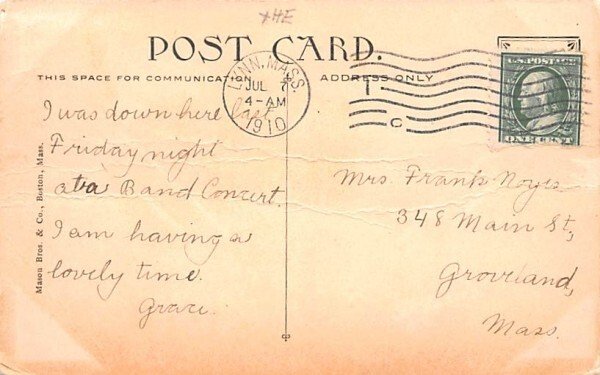 THE
POST CARD.
THIS SPACE FOR COMMUNICATION
ADDRESS ONLY
LYNN, MASS.
JUL 7
4-AM
1910
T
C
U.S. POSTAGE
ONE CENT
I was down here last
Friday night
at a Band Concert.
I am having a
lovely time.
Grace.
Mrs. Frank Noyes
348 Main St,
Groveland,
Mass.
Mason Bros. & Co., Boston, Mass.